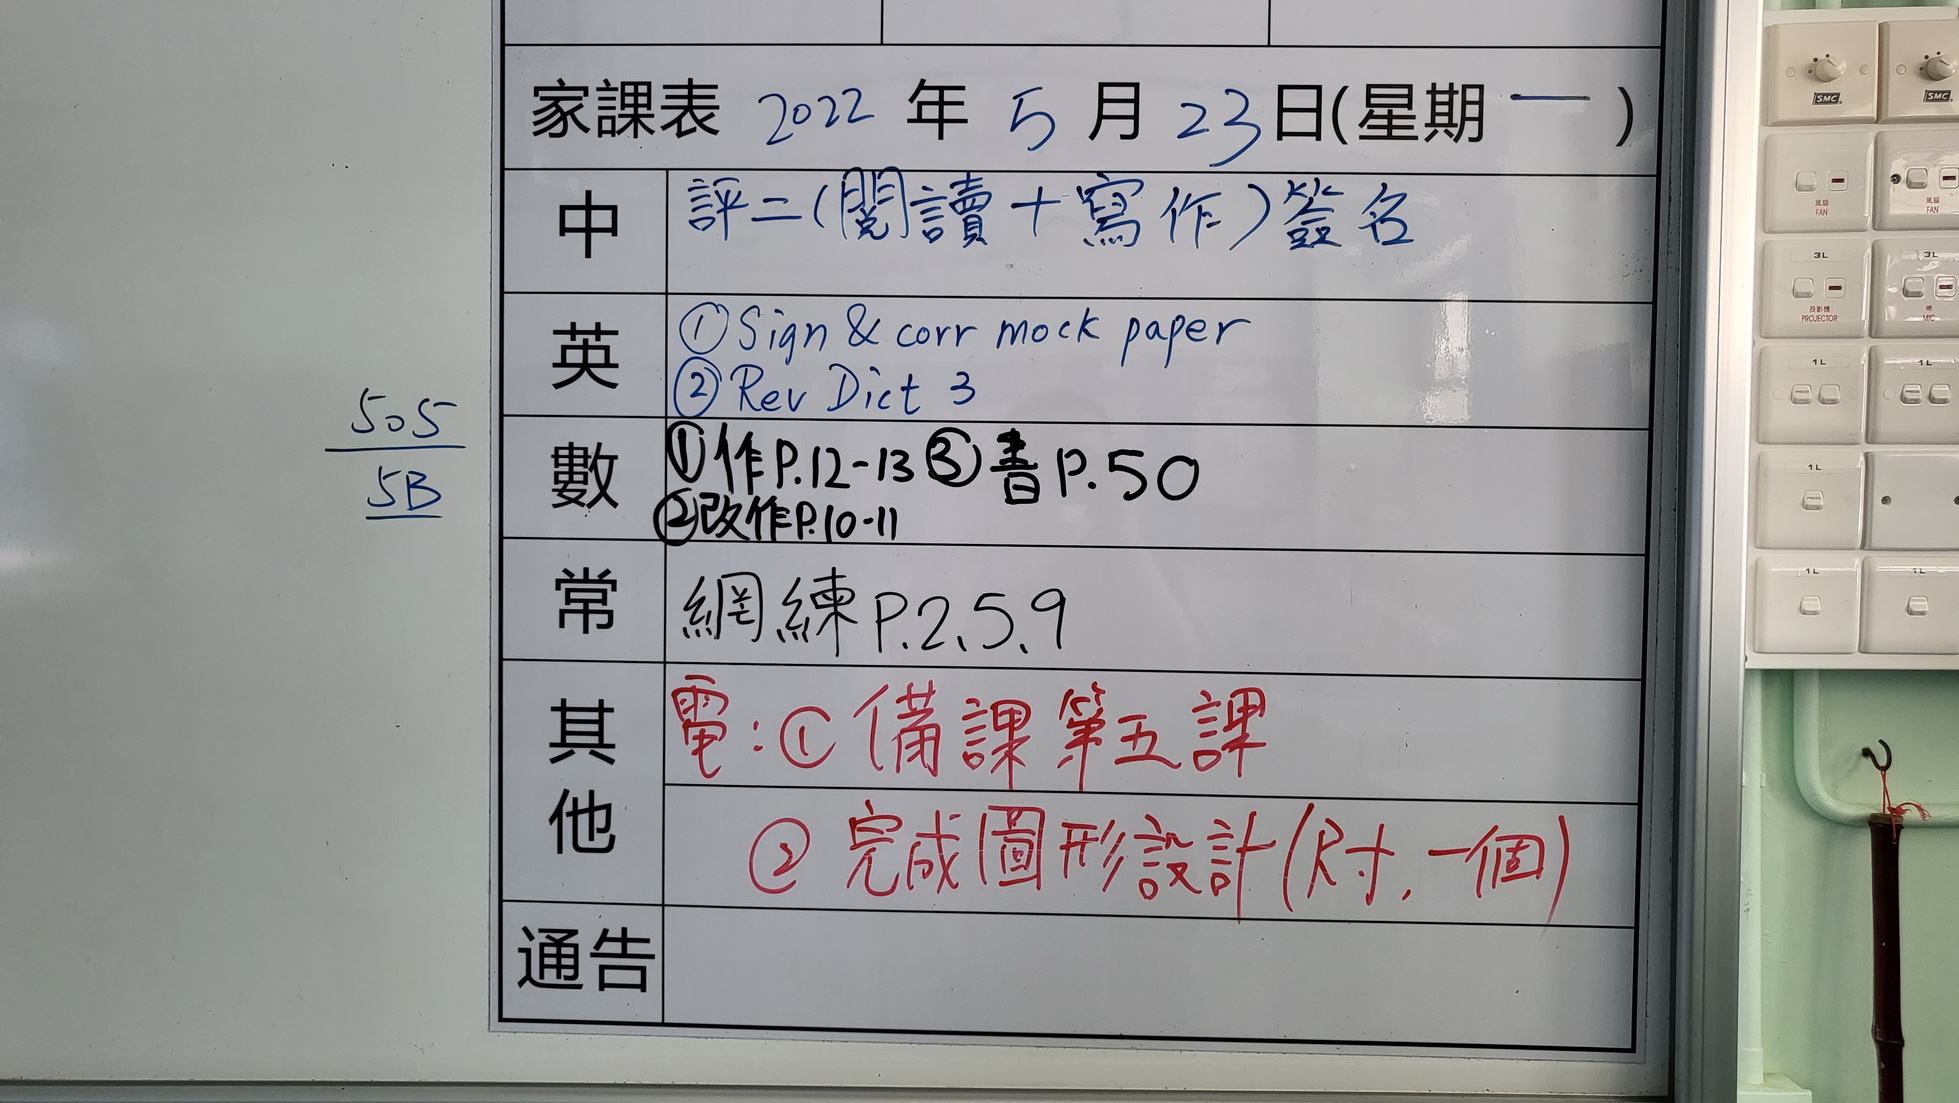 家課表 2022 年 5 月 23 日(星期 一 )
中 評二(閱讀+寫作)簽名
英 ① Sign & corr mock paper
② Rev Dict 3
數 ①作P.12-13 ③書P.50
②改作P.10-11
常 網練P.2、5、9
其他 電:① 備課第五課
② 完成圖形設計(尺寸,一個)
通告
505
5B
SMC
SMC
風扇
FAN
風扇
FAN
3L
3L
投影機
PROJECTOR
MIC
1L
1L
PRESS
PRESS
1L
PRESS
1L
1L